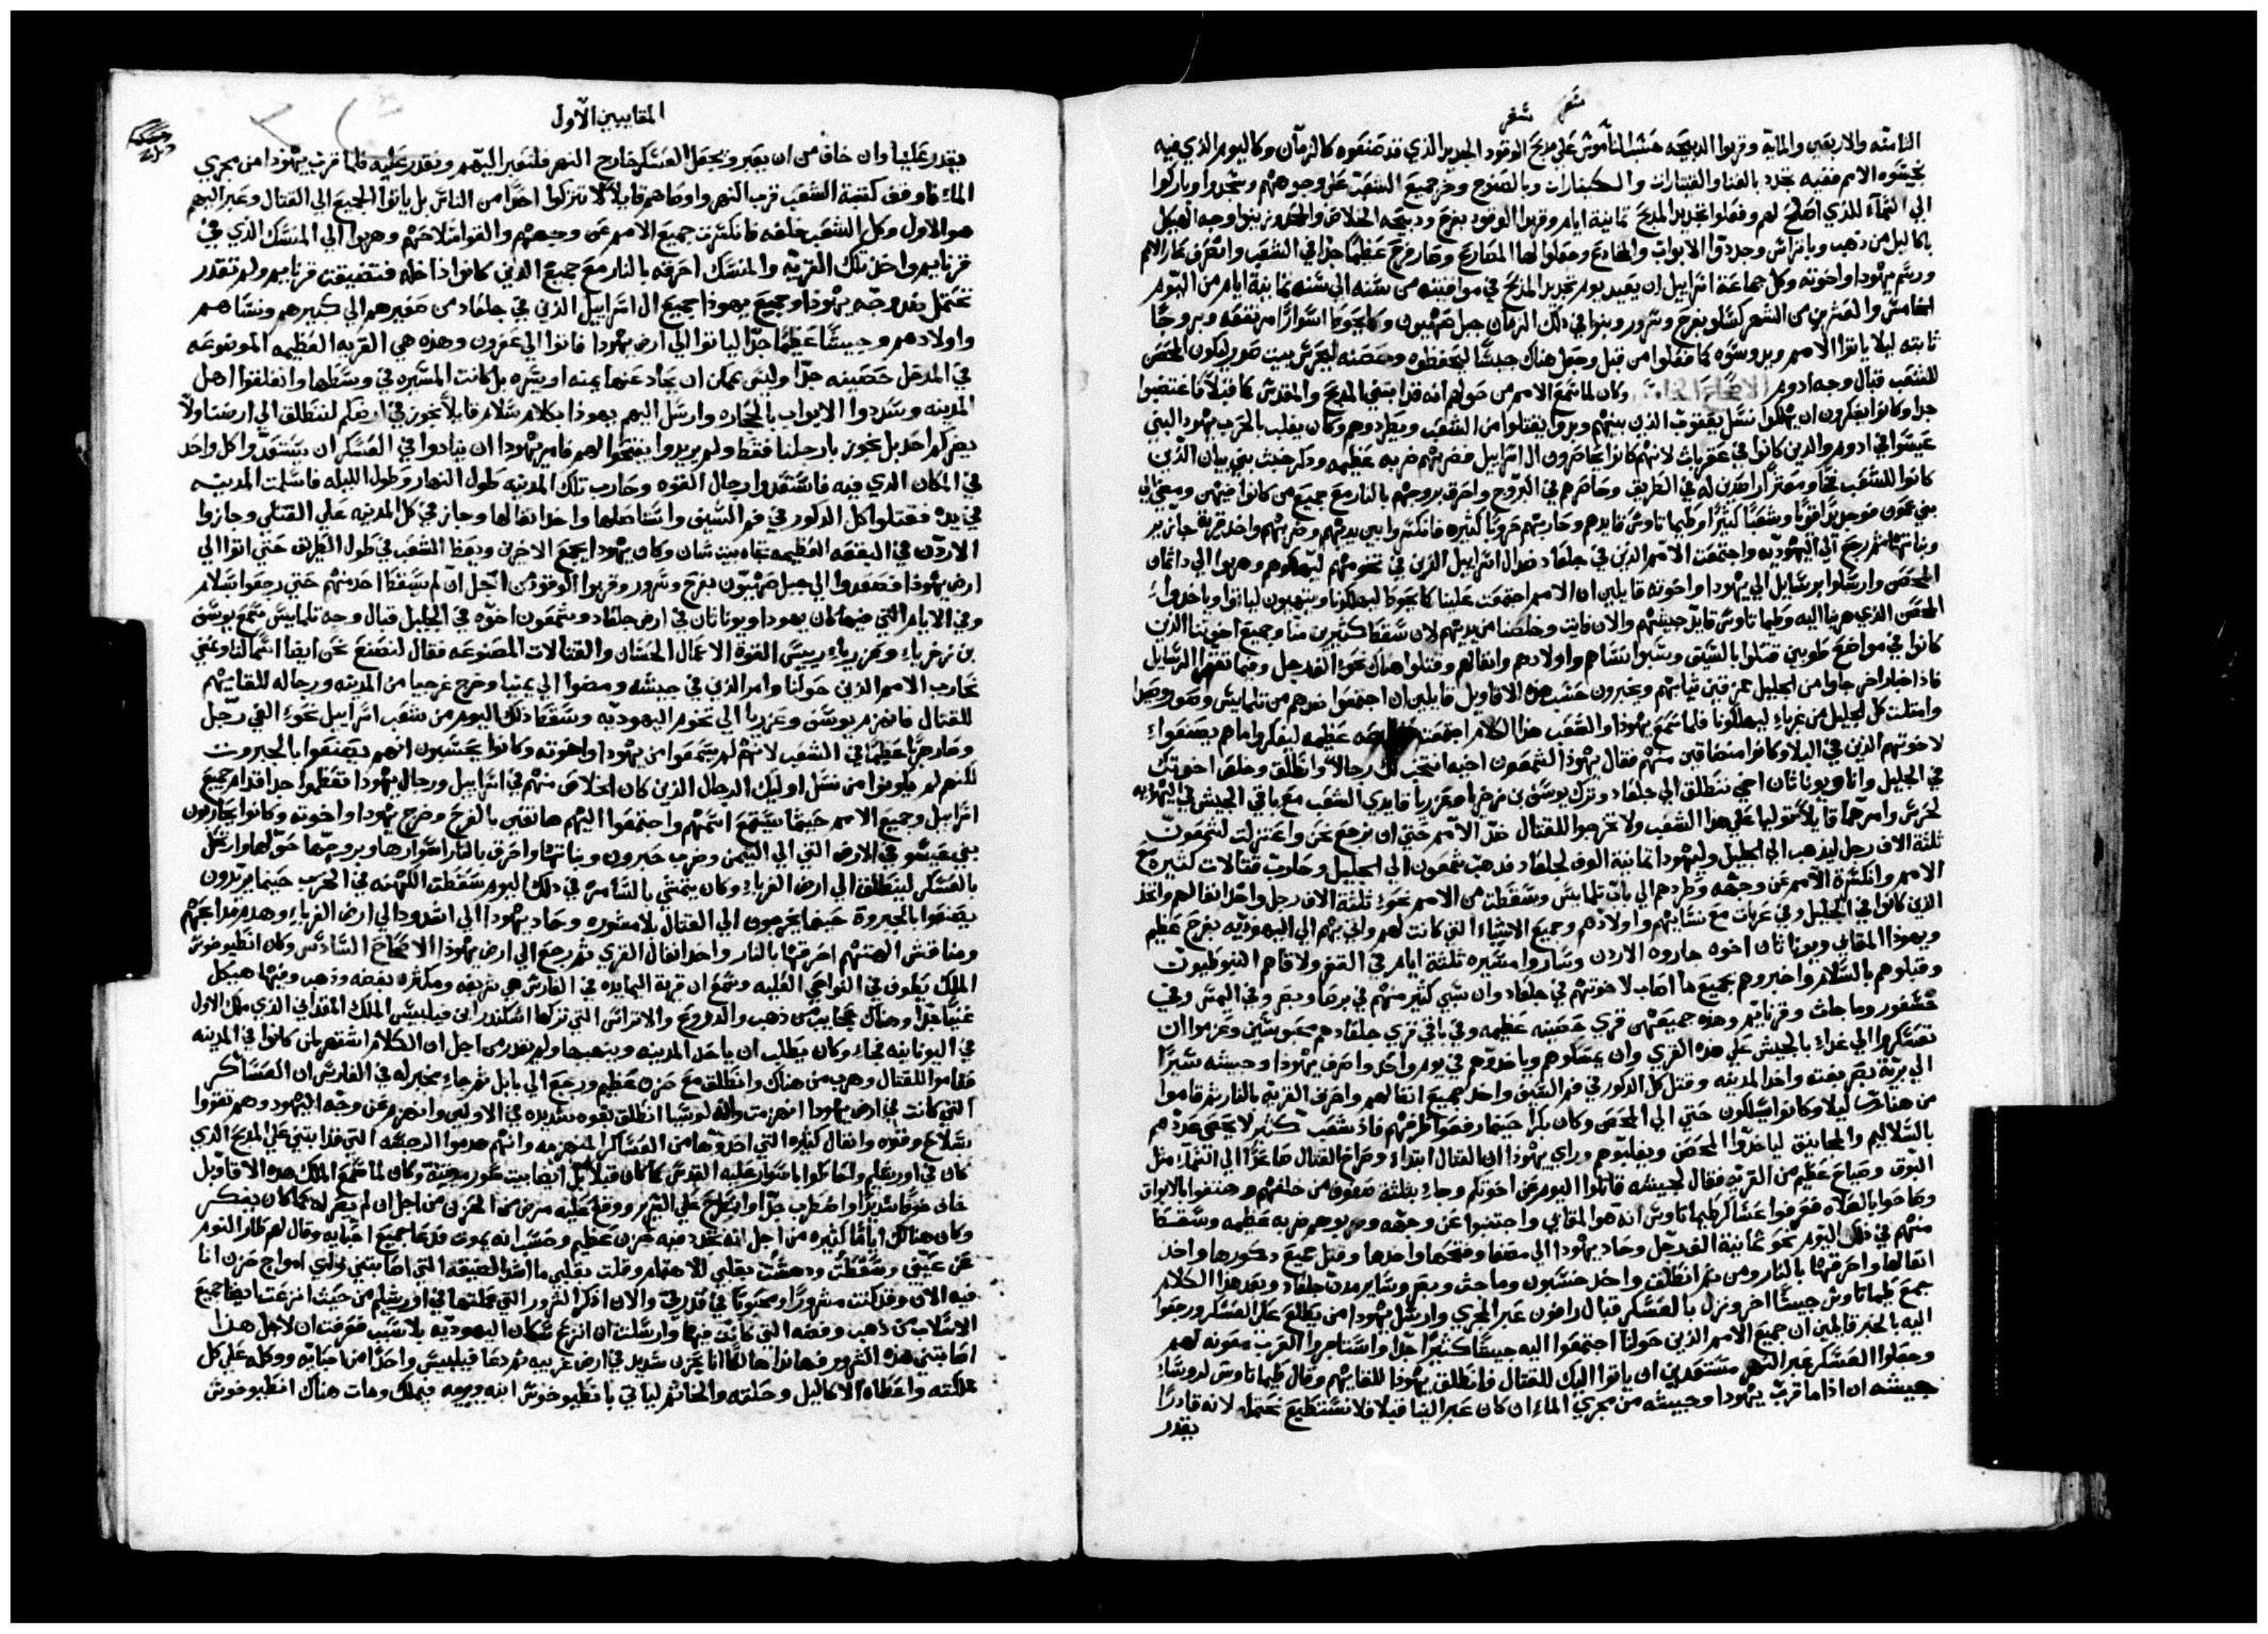 الثامنه والاربعين والمايه وقربوا الدبيحه حسب الناموس علي مدبح الوقود الجديد الذي قد صنعوه كالزمان وكاليوم الذي فيه
نجسوه الامم ففيه تجدد بالغنا والقيتارات والكينارات وبالصنوج وخر جميع الشعب علي وجوههم وسجدوا وباركوا
الي السماء للذي اصلح لهم وفعلوا تجديد المدبح تمانية ايام وقربوا الوقود بفرح ودبيحه الخلاص والحمد وزينوا وجه الهيكل
باكاليل من دهب وباتراس وجددوا الابواب والمخادع وجعلوا لها المصاريع وصار فرح عظيما جدا في الشعب وانصرف عار الامم
ورسم يهودا واخوته وكل جماعة اسراييل ان يعيد يوم تجديد المدبح في مواقيته من سنه الي سنه تمانية ايام من اليوم
الخامس والعشرين من الشهر كسلو بفرح وسرور وبنوا في دلك الزمان جبل صهيون وكاحوط اسوارا مرتفعه وبروجا
ثابته ليلا ياتوا الامم ويدوسوه كما فعلوا من قبل وجعل هناك جيشا ليحفظوه وحصنه ليحرس بيت صور ليكون الحصن
للشعب قبال وجه ادوم وكان لما سمع الامم من حولهم انه قد ابتني المدبح والمقدس كما قبلا فاغتصبوا
جدا وكانوا يفكرون ان يهلكوا نسل يعقوب الذين بينهم وبدوا يقتلوا من الشعب ويطردوهم وكان يغلب بالحرب يهودا لبني
عيسوا في ادوم والدين كانوا في عقربات لانهم كانوا يحاصرون ال اسراييل فضربهم ضربه عظيمه ودكر خبث بني بيان الذين
كانوا للشعب فخا ومعترا راصدين له في الطريق وحاصرهم في البروج واحرق بروجهم بالنار مع جميع من كانوا فيهن ومضي الي
بني عمون فوجد يدا قويا وشعبا كثيرا وطيماتاوس قايدهم وحاربهم حروبا كثيره فانكسروا بين يديهم وضربهم واخد قرية جازير
وبناتها ثم رجع الي اليهوديه واجتمعت الامم الدين في جلعاد ضد ال اسراييل الذين في تخومهم ليهلكوهم وهربوا الي داتمان
الحصن وارسلوا برسايل الي يهودا واخوته قايلين ان الامم اجتمعت علينا كاحوط ليهلكونا ويتهيون لياتوا وياخدوا
الحصن الذي هربنا اليه وطيماتاوس قايد جيشهم والان فايت وخلصنا من يديهم لان سقط كثيرين منا وجميع اخوتنا الدين
كانوا في مواضع طوبين قتلوا بالسيف وسبوا نساهم واولادهم وانقالهم وقتلوا هناك نحو الف رجل وفيما تقرا الرسايل
فاذا اخبار اخر جاوا من الجليل ممزقين ثيابهم ويخبرون حسب هذه الاقاويل قايلين ان اجتمعوا ضدهم من تلمايس وصور وصيدا
وامتلت كل الجليل من غرباء ليهلكونا فلما سمع يهودا والشعب هذا الكلام اجتمعت عظيمه ليفكروا ما هم يصنعوا
لاخوتهم الدين في البلاء وكانوا متضايقين منهم فقال يهودا لشمعون اخيه انتخب لك رجالا وانطلق وخلص اخوتك
في الجليل وانا ويوناتان اخي ننطلق الي جلعاد وترك يوسف بن زخريا وعزريا قايدي الشعب مع باقي الجيش في اليهوديه
لحرس وامرهما قايلا توليا علي هذا الشعب ولا تخرجوا للقتال ضد الامم حتي ان نرجع نحن واعتزلت لشمعون
ثلثة الاف رجل ليذهب الي الجليل وليهودا تمانية الوف لجلعاد فدهب شمعون الي الجليل وحارب قتالات كثيره مع
الامم وانكسرة الامم عن وجهه وطردهم الي باب تلمايس وسقطت من الامم نحو ثلثة الاف رجل واخد انقالهم واتخد
الذين كانوا في الجليل وفي عربات مع نسايهم واولادهم وجميع الاشياء التي كانت لهم واتي بهم الي اليهوديه بفرح عظيم
ويهودا المقابي ويوناتان اخوه جازوه الاردن وساروا مسيره ثلثة ايام في القفر ولاقاهم النبوطيون
وقبلوهم بالسلام واخبروهم بجميع ما اصاب لاخوتهم في جلعاد وان سبي كثير منهم في برصا وبصر وفي اليمس وفي
خسفور وماجات وقرنايم وهذه جميعهن قري حصينه عظيمه وفي باقي قري جلعاد هم محبوسين وعزموا ان
تعسكروا الي غداء بالجيش علي هذه القري وان يمسكوهم وياخدوهم في يوم واحد واصرف يهودا وجيشه سيرا
الي برية بصر بغته واخدا المدينه وقتل كل الدكور في فم السيف واخد جميع انقالهم واحرق القريه بالنار ثم قاموا
من هناك ليلا وكانوا يسلكون حتي الي الحصن وكان بكرا حينما رفعوا طرفهم فاذ شعب كثير لا يحصي عددهم
بالسلاليم والمجانيق لياخدوا الحصن ويغلبوهم وراي يهودا ان القتال ابتداء وصراخ القتال صاعدا الي السماء مثل
البوق وصياح عظيم من القريه فقال لجيشه قاتلوا اليوم عن اخوتكم وجاء بثلثة صفوف من خلفهم وهتفوا بالابواق
وصاحوا بالصلاه فعرفوا عساكر طيماتاوس انه هوا المقابي واجتنبوا عن وجهه وضربوهم ضربه عظيمه وسقط
منهم في دلك اليوم نحو تمانية الف رجل وحاد يهودا الي مصفا وفتحها واخدها وقتل جميع دكورها واخد
انقالها واحرقها بالنار ومن ثم انطلق واخد خسبون وماحت وبصر وساير مدن جلعاد وبعد هذا الكلام
جمع طيماتاوس جيشا اخر ونزل بالعسكر قبال رافون عبر المجري وارسل يهودا من يطلع علي العسكر ورجعوا
اليه بالخبر قايلين ان جميع الامم الذين حولنا اجتمعوا اليه جيشا كثيرا جدا واستاجروا العرب معونه لهم
وجعلوا العسكر عبر النهر مستعدين ان ياتوا اليك للقتال فانطلق يهودا للقايهم وقال طيماتاوس لروساء
جيشه ان اذا ما قرب يهودا وجيشه من مجري الماء ان كان عبر الينا قبلا فلا نستطيع نحتمله لانه قادرا
يقدر
المقابيين الاول
يقدر علينا وان خاف من ان يعبر ويجعل العسكر خارج النهر فلنعبر اليهم ونقدر عليه فلما قرب يهودا من مجري
الماء فاوقف كتبة الشعب قرب النهر واوصاهم قايلا لا تتركوا احدا من الناس بل ياتوا الجميع الي القتال وعبر اليهم
هو الاول وكل الشعب خلفه فانكسرت جميع الامم عن وجههم والقوا سلاحهم وهربوا الي المنسك الذي في
قرنايم واخد تلك القريه والمنسك احرقه بالنار مع جميع الدين كانوا داخله فتضيقت قرنايم ولم تقدر
تحتمل بعد وجه يهودا وجميع يهودا بجميع ال اسراييل الذين في جلعاد من صغيرهم الي كبيرهم ونساهم
واولادهم وجيشا عظيما جدا لياتوا الي ارض يهودا فاتوا الي عفرون وهذه هي القريه العظيمه الموضوعه
في المدخل حصينه جدا وليس يمكن ان يحاد عنها يمنه او يسره بل كانت المسيره في وسطها وانغلقوا اهل
المدينه وسددوا الابواب بالحجاره وارسل اليهم يهودا بكلام سلام قايلا نجوز في ارضكم لننطلق الي ارضنا ولا
يضركم احد بل نجوز بارجلنا فقط ولم يريدوا يفتحوا لهم فامر يهودا ان ينادوا في العسكر ان يستعدوا كل واحد
في المكان الدي فيه فاستعدوا رجال القوه وحارب تلك المدينه طول النهار وطول الليله فاسلمت المدينه
في يده فقتلوا كل الدكور في فم السيف واستاصلها واخد انقالها وجاز في كل المدينه علي القتلي وجازوا
الاردن في البقعه العظيمه تجاه بيت شان وكان يهودا يجمع الاخرين ويعظ الشعب في طول الطريق حتي اتوا الي
ارض يهودا فصعدوا الي جبل صهيون بفرح وسرور وقربوا الوقود من اجل ان لم يسقط احد منهم حتي رجعوا بسلام
وفي الايام التي فيها كان يهودا ويوناتان في ارض جلعاد وشمعون اخوه في الجليل قبال وجه تلمايس سمع يوسف
بن زخرياء وعزرياء رييس القوة الاعمال الحسان والقتالات المصنوعه فقال لنصنع نحن ايضا اسما لنا ونمضي
نحارب الامم الذين حولنا وامر الذين في جيشه ومضوا الي يمنيا وخرج غرجيا من المدينه ورجاله للقايهم
للقتال فانهزم يوسف وعزريا الي تخوم اليهوديه وسقط دلك اليوم من شعب اسراييل نحو الفي رجل
وصار حربا عظيما في الشعب لانهم لم يسمعوا من يهودا واخوته وكانوا يحسبون انهم يصنعوا بالجبروت
لكنهم لم يكونوا من نسل اوليك الرجال الذين كان الخلاص منهم في اسراييل ورجال يهودا تعظموا جدا قدام جميع
اسراييل وجميع الامم حيثما يستمع اسمهم واجتمعوا اليهم هاتفين بالفرح وخرج يهودا واخوته وكانوا يحاربون
بني عيسو في الارض التي الي التيمن وضرب حبرون وبناتها واحرق بالنار اسوارها وبروجها حولها وارتحل
بالعسكر لينطلق الي ارض الغرباء وكان يتمشي بالسامره في دلك اليوم سقطت الكهنه في الحرب حينما يريدون
يصنعوا بالجبروة حينما يخرجون الي القتال بلا مشوره وحاد يهودا الي اشدود الي ارض الغرباء وهدم مدابحهم
ومناقش الهتهم احرقها بالنار واخد انفال القري ثم رجع الي ارض يهودا الاصحاح السادس وكان انطيوخوس
الملك يطوف في النواحي العليه وسمع ان قرية اليمايده في الفارس هي شريفه ومكثره بفضه وذهب وفيها هيكل
غنيا جدا وهناك حجابيب من دهب والدروع والاتراس التي تركها اسكندر ابن فيلبس الملك المقداني الذي ملك الاول
في اليونانيه فجاء وكان يطلب ان ياخد المدينه وينهبها ولم يقدر من اجل ان الكلام اشتهر لمن كانوا في المدينه
فقاموا للقتال وهرب من هناك وانطلق مع حزن عظيم ورجع الي بابل ثم جاء مخبر له في الفارس ان العساكر
التي كانت في ارض يهودا انهزمت وانه لوسيا انطلق بقوه شديده في الاولين وانهزم عن وجه اليهود وهم تقووا
بسلاح وقوه وانفال كثيره التي اخدوها من العساكر المنهزمه وانهم هدموا الرجسه التي قد ابتني علي المدبح الدي
كان في اورشليم واحاطوا باسوار عليه القدس كما كان قبلا بل ايضا بيت صور مدينته وكان لما سمع الملك هذه الاقاويل
خاف خوفا شديدا واضطرب جدا وانطرح علي السرير ووقع عليه مرض من الحزن من اجل ان لم يصر له كما كان يفكر
وكان هناك اياما كثيره من اجل انه تجدد فيه حزن عظيم وحسب انه يموت فدعا جميع احبابه وقال لهم طار النوم
عن عيني وسقطت ودهشت بقلبي للاهتمام وقلت بقلبي ما اشد الضيقه التي اصابتني واي امواج حزن انا
فيه الان وقد كنت مسرورا ومحبوبا في قدرتي والان ادكر الشرور التي عملتها في اورشليم من حيث انزعت ايضا جميع
الاسلاب من دهب وفضه التي كانت فيها وارسلت ان انزع سكان اليهوديه بلا سبب فعرفت ان لاجل هذا
اصابتني هذه الشرور فها انا هالكا انا بحزن شديد في ارض غريبه ثم دعا فيلبس واحدا من احبابه ووكله علي كل
مملكته واعطاه الاكاليل وحلته والخاتم لياتي بانطيوخوس ابنه ويربيه فيملك ومات هناك انطيوخوس